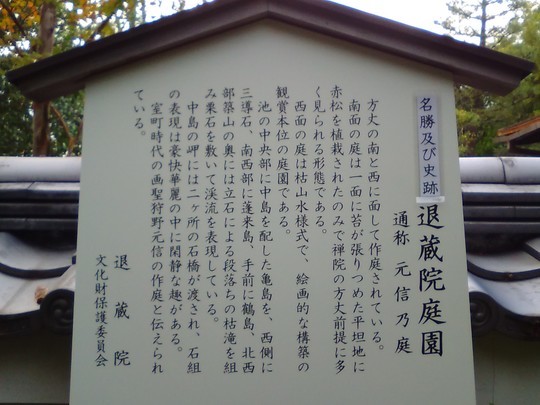 名勝及び史跡
退蔵院庭園
通称 元信乃庭
方丈の南と西に面して作庭されている。
南面の庭は一面に苔が張りつめた平坦地に
赤松を植栽されたのみで禅院の方丈前提に多
く見られる形態である。
西面の庭は枯山水様式で、絵画的な構築の
観賞本位の庭園である。
池の中央部に中島を配した亀島を、西側に
三導石、南西部に蓬来島、手前に鶴島、北西
部築山の奥には立石による段落ちの枯滝を組
み栗石を敷いて渓流を表現している。
中島の岬には二ヶ所の石橋が渡され、石組
の表現は豪快華麗の中に閑静な趣がある。
室町時代の画聖狩野元信の作庭と伝えられ
ている。
退蔵院
文化財保護委員会